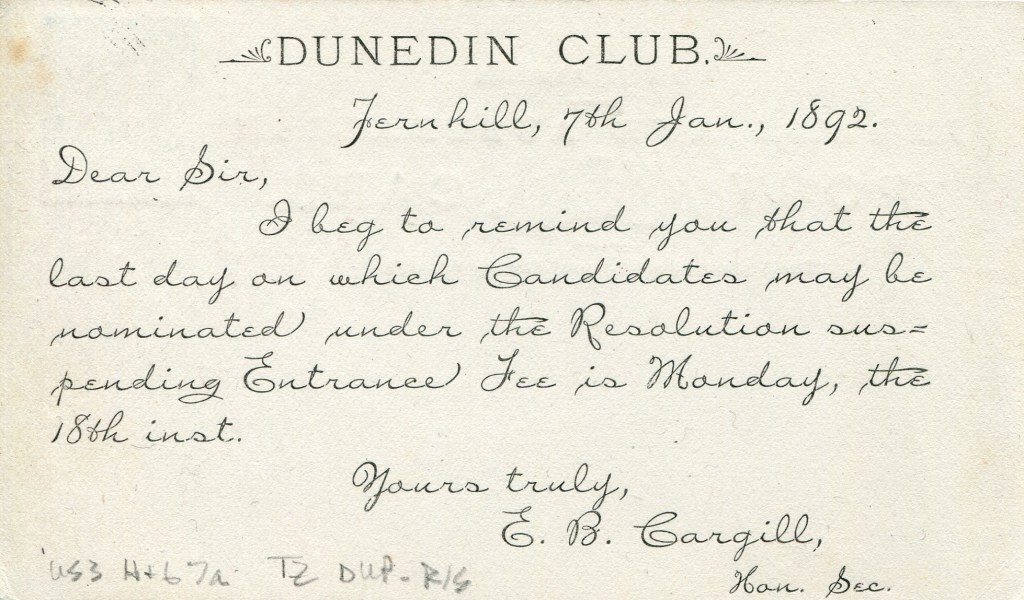 DUNEDIN CLUB.
Fernhill, 7th Jan., 1892.
Dear Sir,
I beg to remind you that the
last day on which Candidates may be
nominated under the Resolution sus=
pending Entrance Fee is Monday, the
18th inst.
Yours truly,
E. B. Cargill,
Hon. Sec.
DUP.